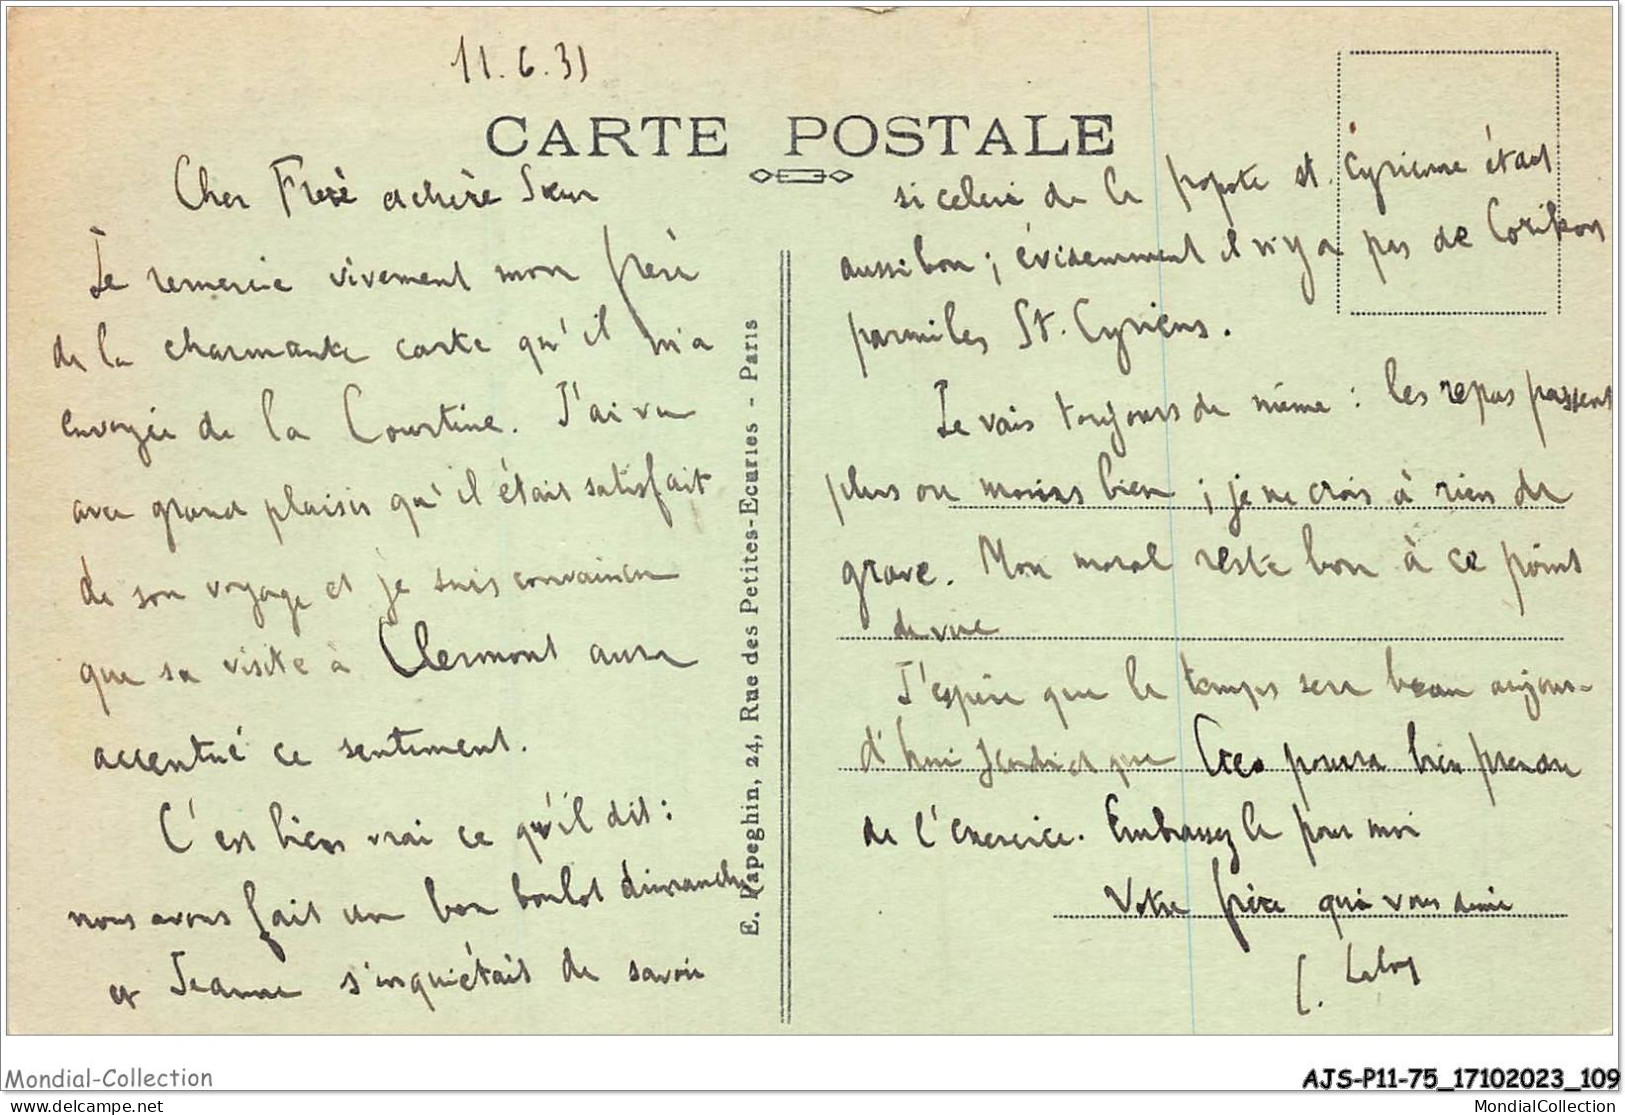 11.6.31
CARTE POSTALE
Cher Frère et chère Sœur
Je remercie vivement mon frère
de la charmante carte qu'il m'a
envoyée de la Courtine. J'ai vu
avec grand plaisir qu'il était satisfait
de son voyage et je suis convaincu
que sa visite à Clermont aura
accentué ce sentiment.
C'est bien vrai ce qu'il dit :
nous avons fait un bon boulot dimanche
et Jeanne s'inquiétait de savoir
E. Papeghin, 24, Rue des Petites-Ecuries - Paris
si celui de la popote st. Cyrienne était
aussi bon ; évidemment il n'y a pas de
parmi les St. Cyriens.
Je vais toujours de même : les repas passent
plus ou moins bien ; je ne crois à rien de
grave. Mon moral reste bon à ce point
de vue
J'espère que le temps sera beau aujour-
d'hui jeudi et que pourra bien prendre
de l'exercice. Embrassez le pour moi
Votre frère qui vous aime
Mondial-Collection
AJS-P11-75_17102023_109
delcampe.net
MondialCollection